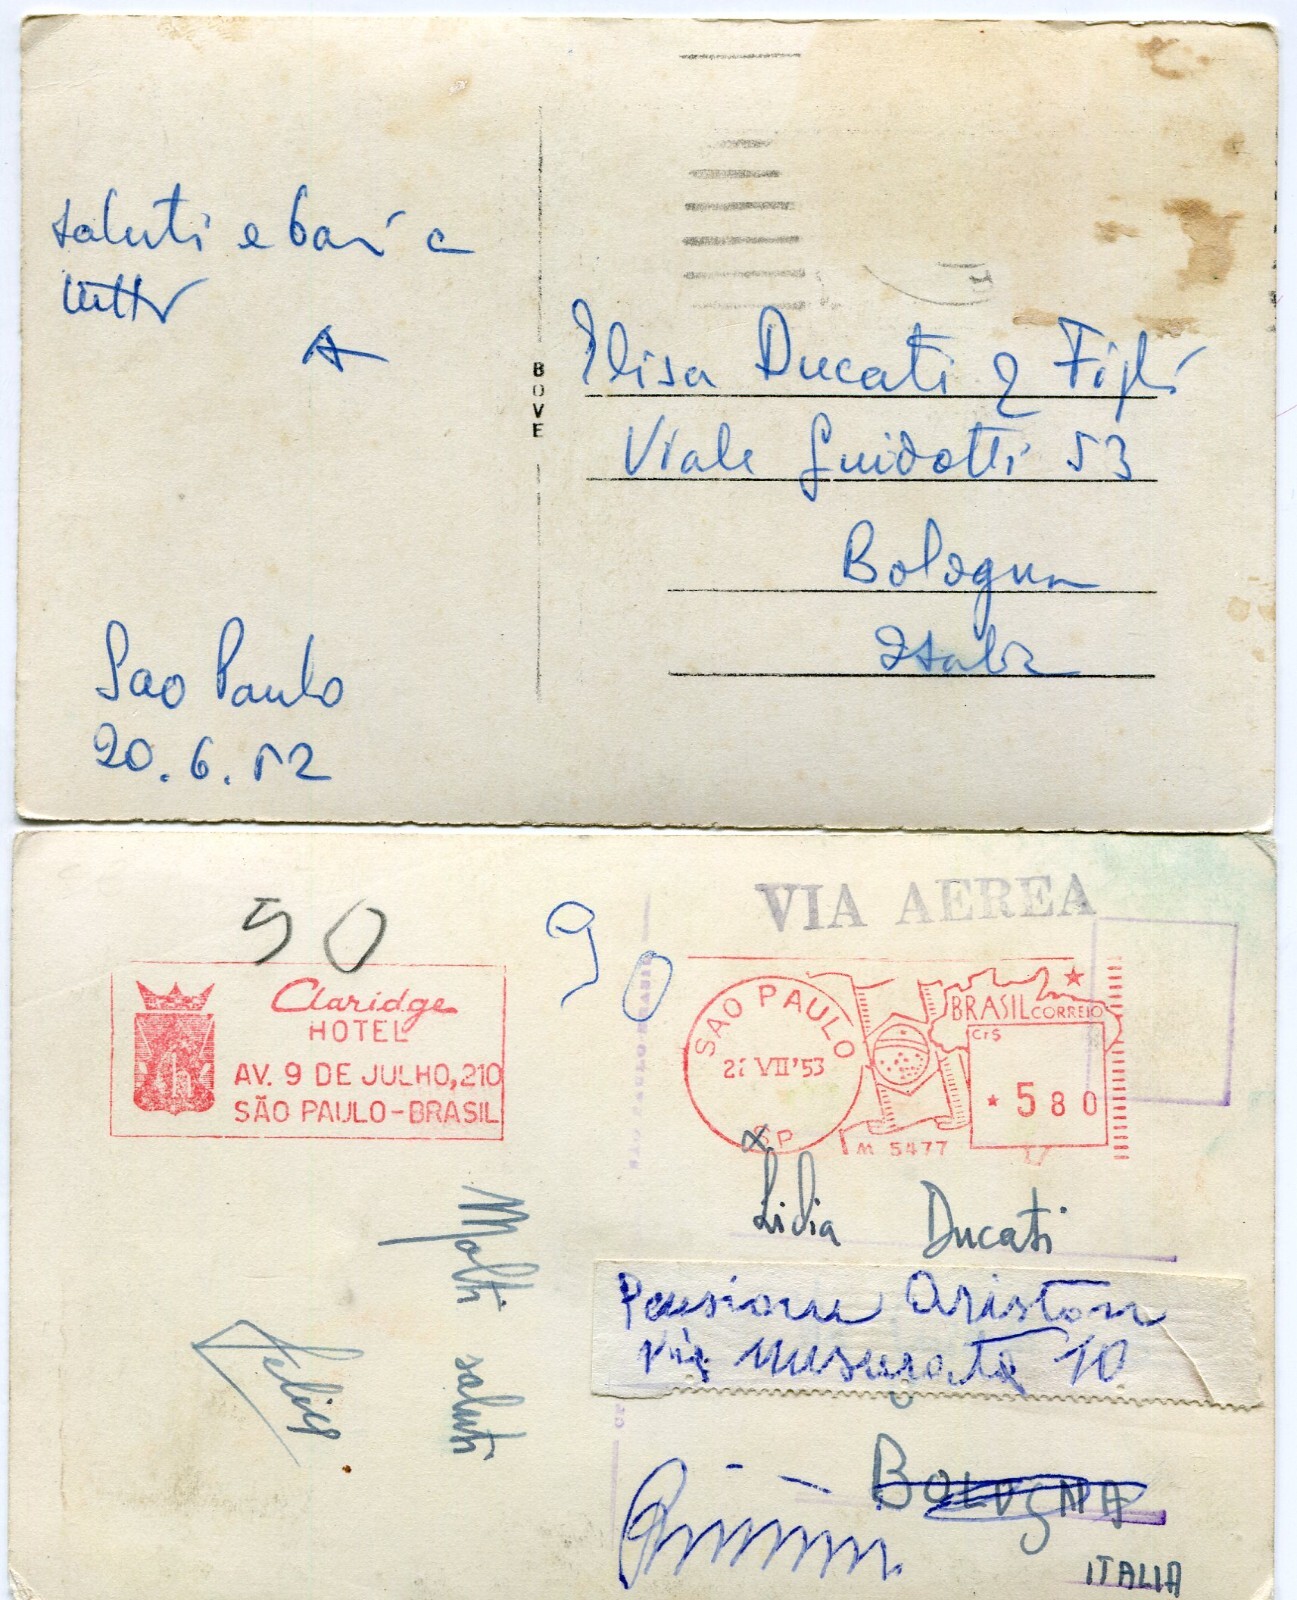 saluti e baci a
tutti
A
BOVE
Elisa Ducati e Figli
Viale Guidotti 53
Bologna
Italia
Sao Paulo
20.6.52
50
90
VIA AEREA
Claridge
HOTEL
AV. 9 DE JULHO, 210
SÃO PAULO - BRASIL
SAO PAULO
22 VII '53
SP
M 5477
BRASIL CORREIO
Cr$
* 5 80
Lidia Ducati
Pensione Ariston
Via Misurata 10
Molti saluti
Felice
BOLOGNA
Rimini
ITALIA